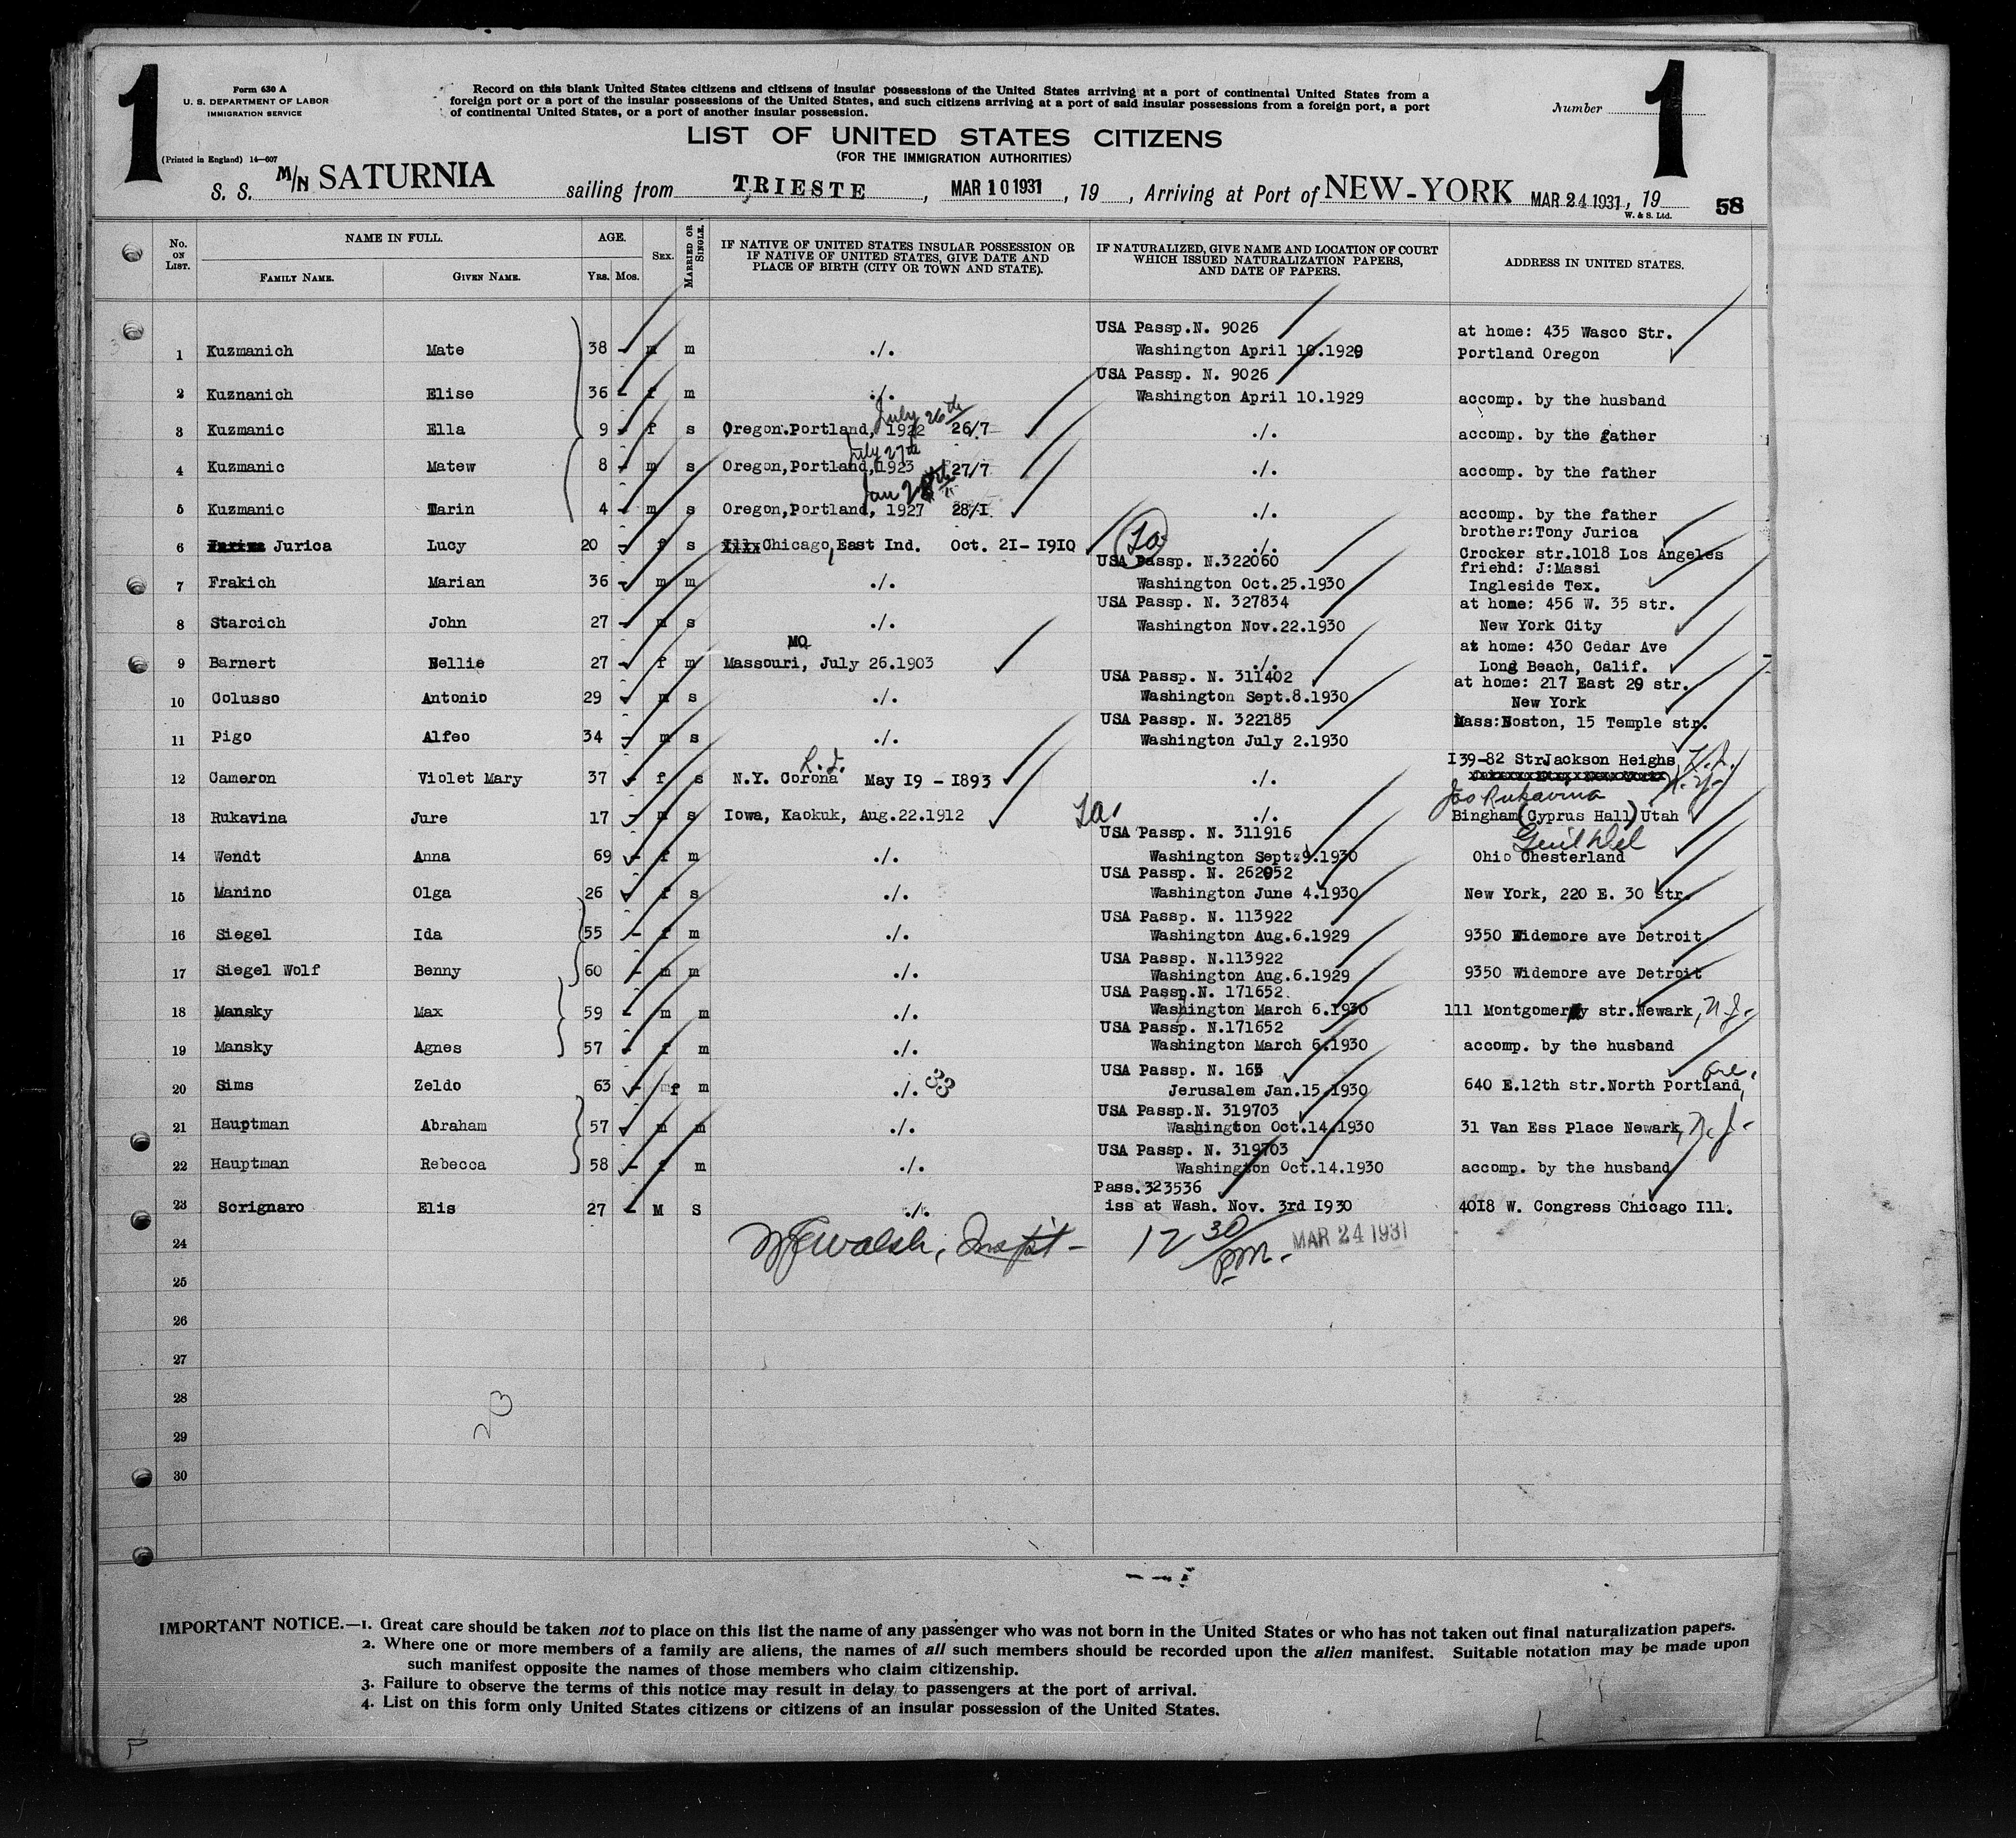 1
1
Form 630 A
U. S. DEPARTMENT OF LABOR
IMMIGRATION SERVICE
Record on this blank United States citizens and citizens of insular possessions of the United States arriving at a port of continental United States from a
foreign port or a port of the insular possessions of the United States, and such citizens arriving at a port of said insular possessions from a foreign port, a port
of continental United States, or a port of another insular possession.
Number
LIST OF UNITED STATES CITIZENS
(FOR THE IMMIGRATION AUTHORITIES)
(Printed in England) 14—607
S. S. M/N SATURNIA sailing from TRIESTE, MAR 10 1931, 19 , Arriving at Port of NEW-YORK MAR 24 1931, 19
W. & S. Ltd.
58
No. ON LIST. NAME IN FULL. AGE. SEX. MARRIED OR SINGLE. IF NATIVE OF UNITED STATES INSULAR POSSESSION OR IF NATIVE OF UNITED STATES, GIVE DATE AND PLACE OF BIRTH (CITY OR TOWN AND STATE). IF NATURALIZED, GIVE NAME AND LOCATION OF COURT WHICH ISSUED NATURALIZATION PAPERS, AND DATE OF PAPERS. ADDRESS IN UNITED STATES.
FAMILY NAME. GIVEN NAME. YRS. MOS.
USA Passp.N. 9026 at home: 435 Wasco Str.
1 Kuzmanich Mate 38 m m ./. Washington April 10.1929 Portland Oregon
USA Passp. N. 9026
2 Kuznanich Elise 36 f m ./. Washington April 10.1929 accomp. by the husband
July 26th
3 Kuzmanic Ella 9 f s Oregon.Portland, 1922 26/7 ./. accomp. by the gather
July 27th
4 Kuzmanic Matew 8 m s Oregon,Portland,1923 27/7 ./. accomp. by the father
Jan 28th
5 Kuzmanic Marin 4 m s Oregon,Portland, 1927 28/I ./. accomp. by the father
brother:Tony Jurica
6 Jurica Lucy 20 f s Chicago,East Ind. Oct. 2I- I9IO ./. Crocker str.1018 Los Angeles
USA Passp. N.322060 friend: J:Massi
7 Frakich Marian 36 m m ./. Washington Oct.25.1930 Ingleside Tex.
USA Passp. N. 327834 at home: 456 W. 35 str.
8 Starcich John 27 m s ./. Washington Nov.22.1930 New York City
MO at home: 430 Cedar Ave
9 Barnert Nellie 27 f m Massouri, July 26.1903 ./. Long Beach, Calif.
USA Passp. N. 311402 at home: 217 East 29 str.
10 Colusso Antonio 29 m s ./. Washington Sept.8.1930 New York
USA Passp. N. 322185 Mass:Boston, 15 Temple str.
11 Pigo Alfeo 34 m s ./. Washington July 2.1930
L.I. I39-82 StrJackson Heighs, L.I.
12 Cameron Violet Mary 37 f s N.Y. Corona May I9 - I893 ./. N.Y-
Jos Rukavina
13 Rukavina Jure 17 m s Iowa, Kaokuk, Aug.22.1912 ./. Bingham (Cyprus Hall) Utah
USA Passp. N. 311916
14 Wendt Anna 69 f m ./. Washington Sept:9.1930 Ohio Chesterland
USA Passp. N. 262952
15 Manino Olga 26 f s ./. Washington June 4.1930 New York, 220 E. 30 str.
USA Passp. N. 113922
16 Siegel Ida 55 f m ./. Washington Aug.6.1929 9350 Widemore ave Detroit
USA Passp. N.113922
17 Siegel Wolf Benny 60 m m ./. Washington Aug.6.1929 9350 Widemore ave Detroit
USA Passp.N. 171652
18 Mansky Max 59 m m ./. Washington March 6.1930 111 Montgomery str.Newark, N.J-
USA Passp. N.171652
19 Mansky Agnes 57 f m ./. Washington March 6.1930 accomp. by the husband
USA Passp. N. 165 Ore.
20 Sims Zeldo 63 f m ./. 33 Jerusalem Jan.15.1930 640 E.12th str.North Portland,
USA Passp.N. 319703
21 Hauptman Abraham 57 m m ./. Washington Oct.14.1930 31 Van Ess Place Newark, N.J-
USA Passp. N. 319703
22 Hauptman Rebecca 58 f m ./. Washington Oct.14.1930 accomp. by the husband
Pass.323536
23 Scrignaro Elis 27 M S ./. iss at Wash. Nov. 3rd I930 40I8 W. Congress Chicago Ill.
24 Walsh, Inspt- 12 30/PM- MAR 24 1931
25
26
27
28
29
30
23
IMPORTANT NOTICE.—1. Great care should be taken not to place on this list the name of any passenger who was not born in the United States or who has not taken out final naturalization papers.
2. Where one or more members of a family are aliens, the names of all such members should be recorded upon the alien manifest. Suitable notation may be made upon
such manifest opposite the names of those members who claim citizenship.
3. Failure to observe the terms of this notice may result in delay to passengers at the port of arrival.
4. List on this form only United States citizens or citizens of an insular possession of the United States.